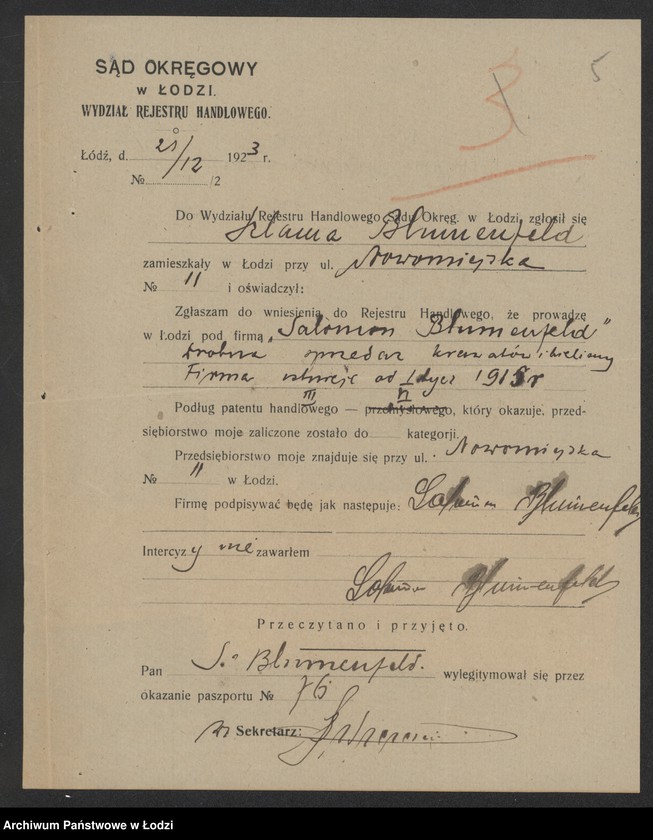 3 5
SĄD OKRĘGOWY
w ŁODZI.
WYDZIAŁ REJESTRU HANDLOWEGO.
Łódź, d. 21/12 1923 r.
№ /2
Do Wydziału Rejestru Handlowego Sądu Okręg. w Łodzi, zgłosił się
Szlama Blumenfeld
zamieszkały w Łodzi przy ul. Nowomiejska
№ 11 i oświadczył:
Zgłaszam do wniesienia do Rejestru Handlowego, że prowadzę
w Łodzi pod firmą „Salomon Blumenfeld"
Drobna sprzedaż krawatów i bielizny
Firma istnieje od 1 stycz 1915 r
III VI
Podług patentu handlowego — przemysłowego, który okazuje, przed-
siębiorstwo moje zaliczone zostało do kategorji.
Przedsiębiorstwo moje znajduje się przy ul. Nowomiejska
№ 11 w Łodzi.
Firmę podpisywać będę jak następuje: Salomon Blumenfeld
Intercyzy nie zawarłem
Salomon Blumenfeld
Przeczytano i przyjęto.
Pan S. Blumenfeld. wylegitymował się przez
okazanie paszportu № 76
Sekretarz:
Archiwum Państwowe w Łodzi